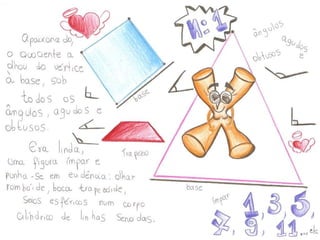 Apaixonado,
o quociente a
olhou do vértice
à base, sob
todos os
ângulos, agudos e
obtusos.
Era linda,
uma figura ímpar e
punha-se em evidência: olhar
rombóide, boca trapezoide,
seios esféricos num corpo
cilíndrico de linhas senoidas.
base
Trapézio
nº: 1
ângulos
agudos
e
obtusos
base
ímpar
1, 3, 5,
7, 9, 11 ...etc